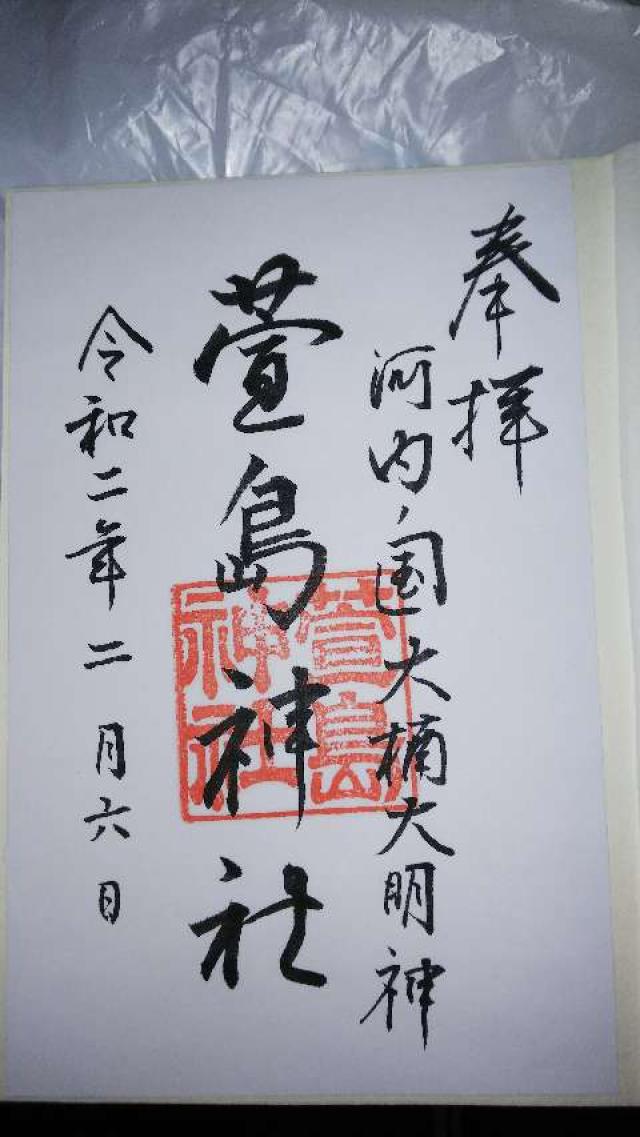 奉拝
河内国大楠大明神
萱島神社
萱島神社
令和二年二月六日